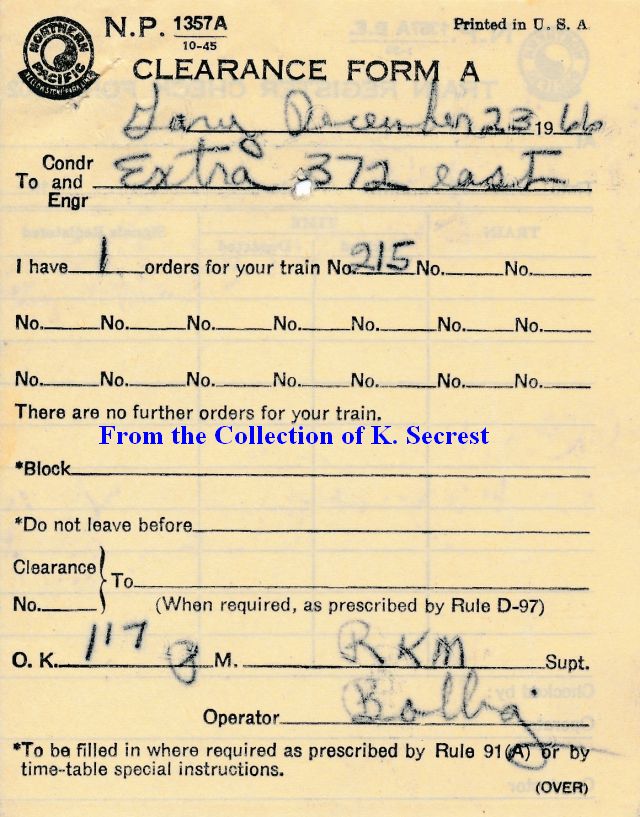 NORTHERN PACIFIC
N.P. 1357A
10-45
Printed in U. S. A
CLEARANCE FORM A
Gary December 23 1966
To Condr and Engr Extra 372 east
I have 1 orders for your train No. 215 No. No.
No. No. No. No. No. No. No.
No. No. No. No. No. No. No.
There are no further orders for your train.
From the Collection of K. Secrest
*Block
*Do not leave before
Clearance No. } To
(When required, as prescribed by Rule D-97)
O. K. 117 P M. RKM Supt.
Operator
*To be filled in where required as prescribed by Rule 91(A) or by
time-table special instructions.
(OVER)